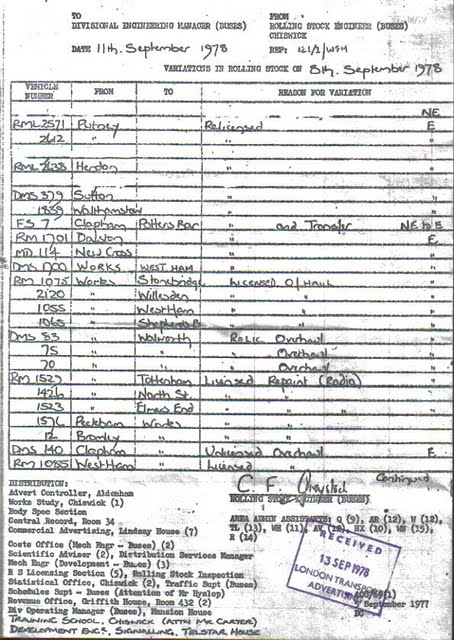 TO FROM
DIVISIONAL ENGINEERING MANAGER (BUSES) ROLLING STOCK ENGINEER (BUSES)
CHISWICK
DATE 11th. September 1978 REF: 121/2/WFH
VARIATIONS IN ROLLING STOCK ON 8th. September 1978
VEHICLE NUMBER FROM TO REASON FOR VARIATION
NE
RML 2571 Putney Relicensed E
2612 " "
RML 2638 Hendon "
DMS 379 Sutton "
1839 Walthamstow "
FS 7 Clapham Potters Bar " and Transfer NE to E
RM 1701 Dalston " E
MD 114 New Cross "
DMS 1700 WORKS WEST HAM "
RM 1075 Works Stonebridge Licensed O/Haul
2120 " Willesden " "
1055 " West Ham " "
1065 " Shepherds B " "
DMS 83 " Walworth Relic Overhaul
75 " " " Overhaul
70 " " " Overhaul
RM 1529 " Tottenham Licensed Repaint (Radio)
1426 " North St. " "
1523 " Elmers End " " "
1576 Peckham Works " "
12 Bromley " " "
DMS 140 Clapham " Unlicensed Overhaul E
RM 1085 West Ham " Licensed "
Continued
DISTRIBUTION:
Advert Controller, Aldenham
Works Study, Chiswick (1) ROLLING STOCK ENGINEER (BUSES)
Body Spec Section
Central Record, Room 34 AREA ADMIN ASSISTANTS: Q (9), AR (12), W (12),
Commercial Advertising, Lindsay House (7) TL (13), WH (11), AV (12), NX (10), WN (15),
R (14)
Costs Office (Mech Engr - Buses) (2)
Scientific Adviser (2), Distribution Services Manager
Mech Engr (Development - Buses) (3)
R S Licensing Section (5), Rolling Stock Inspection
Statistical Office, Chiswick (2), Traffic Supt (Buses)
Schedules Supt - Buses (Attention of Mr Hyslop)
Revenue Office, Griffith House, Room 432 (2)
Div Operating Manager (Buses), Mansion House
TRAINING SCHOOL, CHISWICK (ATTN MR. CARTER)
DEVELOPMENT ENGR. SIGNALLING, TELSTAR HOUSE
RECEIVED
13 SEP 1978
LONDON TRANSPORT
ADVERTISING
September 1977